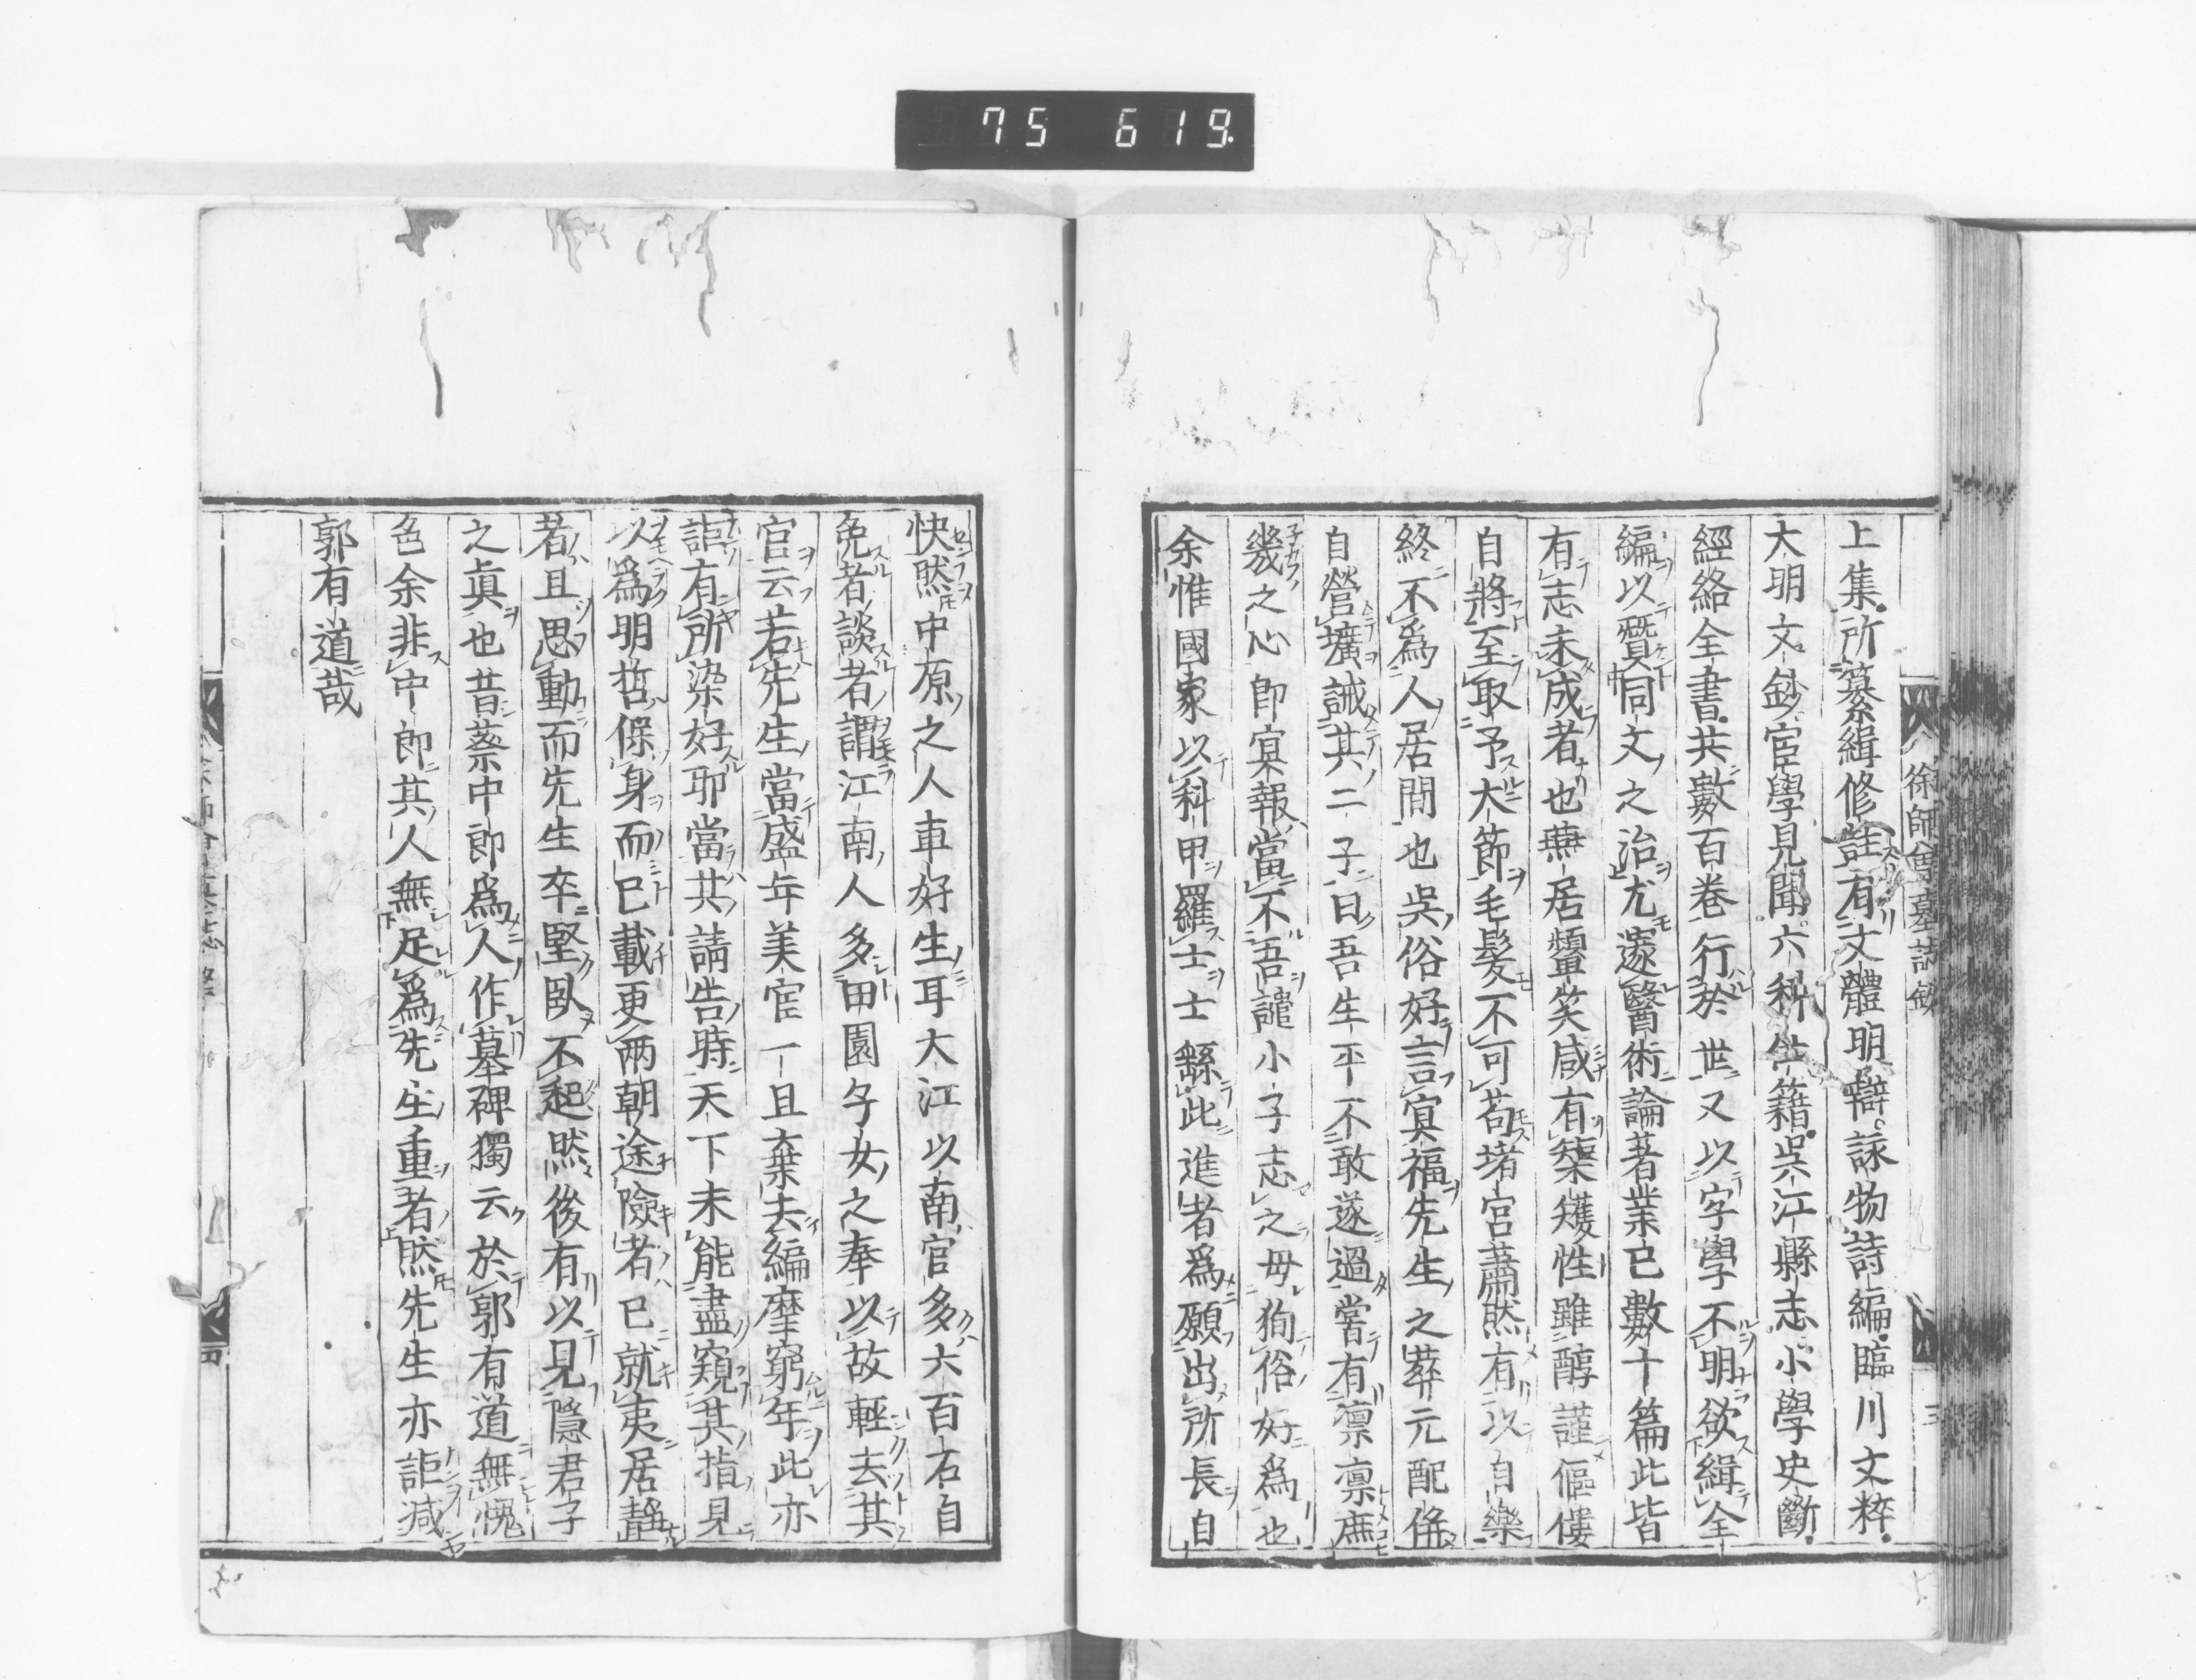 75 619.
徐師曾墓誌銘
三
上集所纂緝修註有文體明辯詠物詩編臨川文粹
大明文鈔宦學見聞六科仕籍吳江縣志小學史斷
經絡全書共數百卷行於世又以字學不明欲緝全
編以贊同文之治尤邃醫術論著業已數十篇此皆
有志未成者也燕居顰笑咸有榘矱性雖醇謹傴僂
自將至取予大節毛髮不可苟堵宮蕭然有以自樂
終不為人居間也吳俗好言冥福先生之葬元配俻
自營壙誡其二子曰吾生平不敢遂過嘗有凛凛庶
幾之心即冥報當不吾譴小子志之毋狥俗好為也
余惟國家以科甲羅士士繇此進者為願出所長自
快然中原之人車好生耳大江以南官多六百石自
免者談者謂江南人多田園子女之奉以故輕去其
官云若先生當盛年美宦一旦棄去編摩窮年此亦
詎有所染好耶當其請告時天下未能盡窺其指見
以為明哲保身而已載更兩朝途險者已就夷居靜
者且思動而先生卒堅臥不起然後有以見隱君子
之真也昔蔡中郎為人作墓碑獨云於郭有道無愧
色余非中郎其人無足為先生重者然先生亦詎減
郭有道哉
四